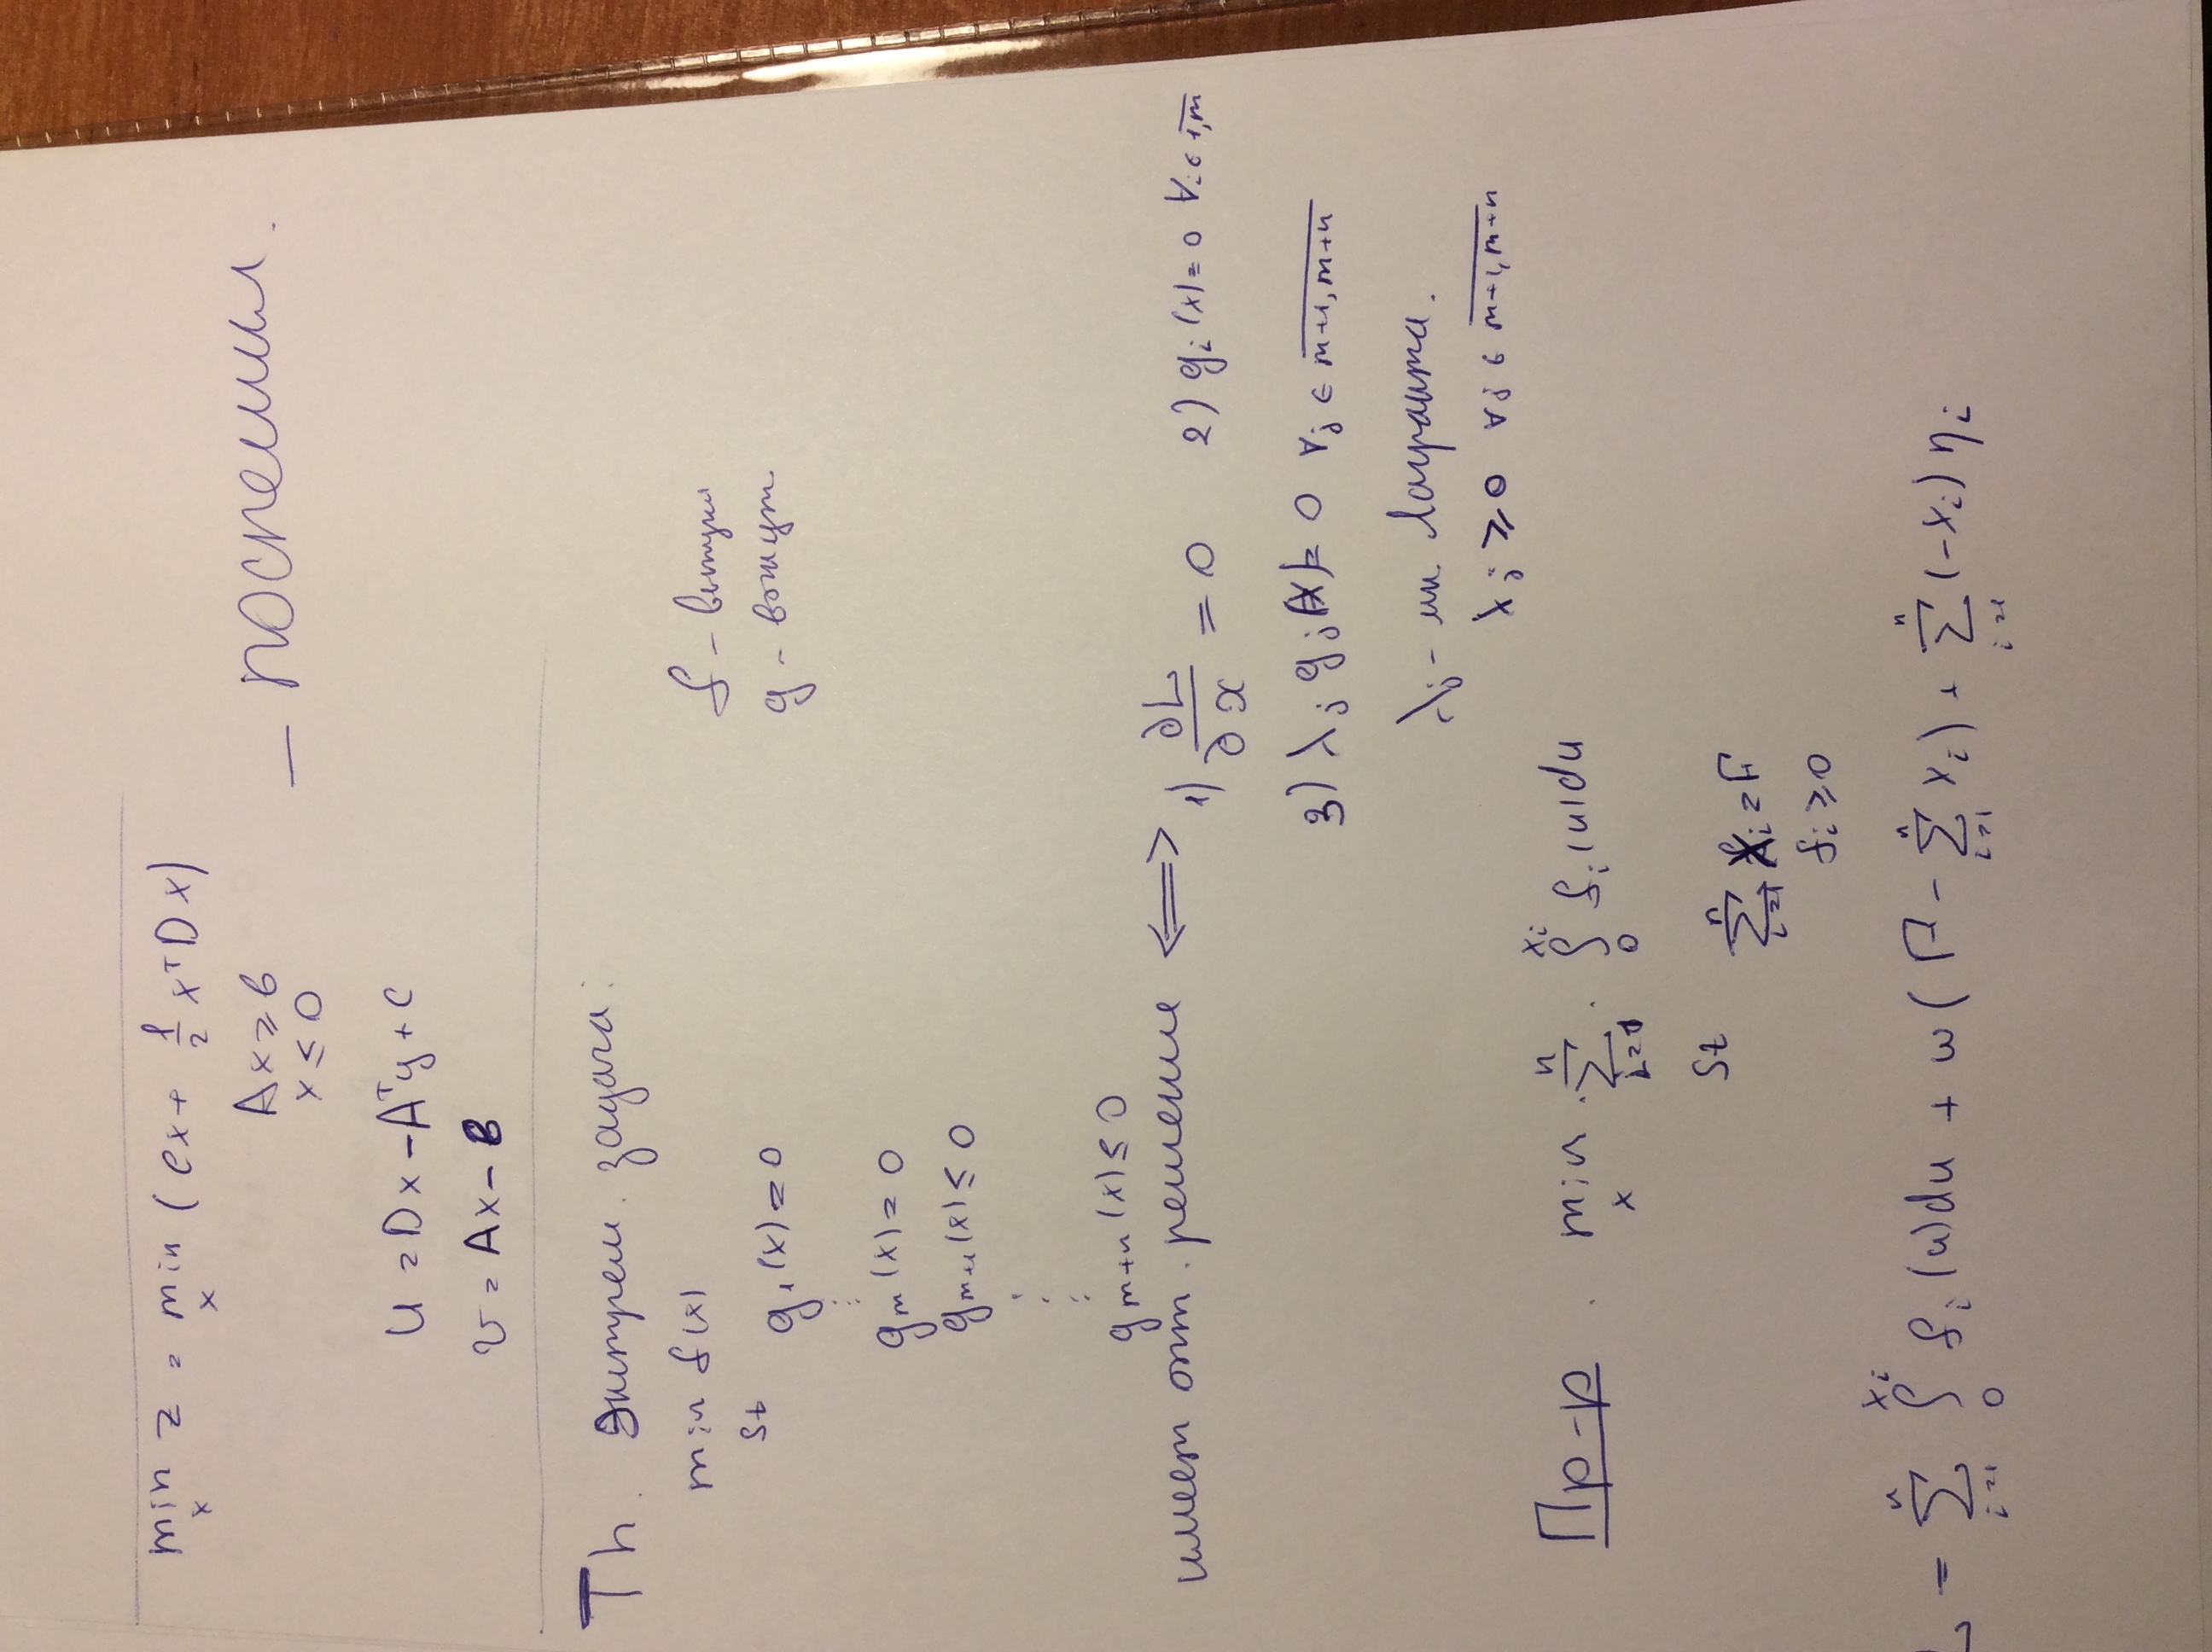 min_x z = min_x (cx + 1/2 x^T D x)
Ax ≥ b
x ≤ 0
— поспешил.
u = Dx - A^T y + c
v = Ax - b
Th. Экстрем. задача:
min f(x)
f - выпукл
st
g_1(x) = 0
g - вогнут
⋮
g_m(x) = 0
g_{m+1}(x) ≤ 0
⋮
g_{m+n}(x) ≤ 0
имеет опт. решение ⟺ 1) ∂L/∂x = 0 2) g_i(x) = 0 ∀i ∈ \overline{1,m}
3) λ_j g_j(x) = 0 ∀j ∈ \overline{m+1, m+n}
λ_j - мн. Лагранжа.
λ_j ≥ 0 ∀j ∈ \overline{m+1, m+n}
Пр-р. min_x ∑_{i=1}^n ∫_0^{x_i} f_i(u)du
St
∑_{i=1}^n x_i = F
f_i ≥ 0
L = ∑_{i=1}^n ∫_0^{x_i} f_i(u)du + w(F - ∑_{i=1}^n x_i) + ∑_{i=1}^n (-x_i) η_i